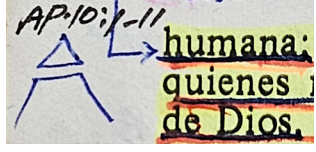 AP. 10:1-11
humana;
quienes
de Dios.